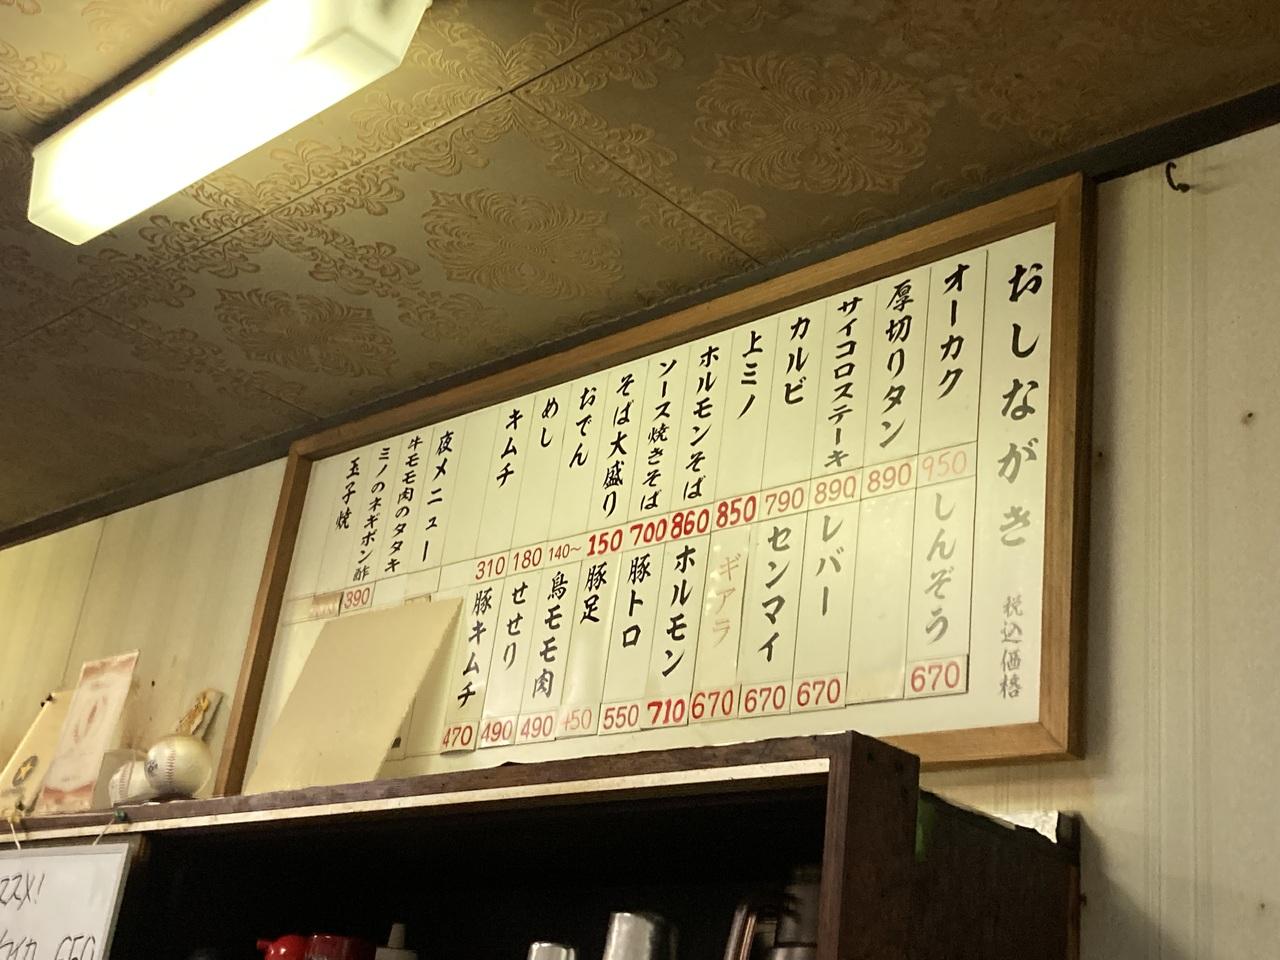 おしながき 税込価格
オーカク 950
厚切りタン 890
サイコロステーキ 890
カルビ 790
上ミノ 850
ホルモンそば 860
ソース焼きそば 700
そば大盛り 150
おでん 140~
めし 180
キムチ 310
夜メニュー
牛モモ肉のタタキ
ミノのネギポン酢 390
玉子焼
しんぞう 670
レバー 670
センマイ 670
ギアラ 670
ホルモン 710
豚トロ 550
豚足 450
鳥モモ肉 490
せせり 490
豚キムチ 470
ススメ!
650